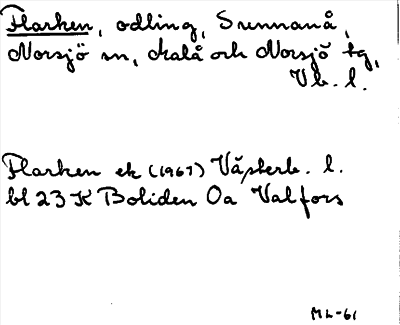 Flarken, odling, Sunnanå,
Norsjö sn, Malå och Norsjö tg,
Vb. l.
Flarken ek (1967) Västerb. l.
bl 23 K Boliden Oa Valfors
ML-61